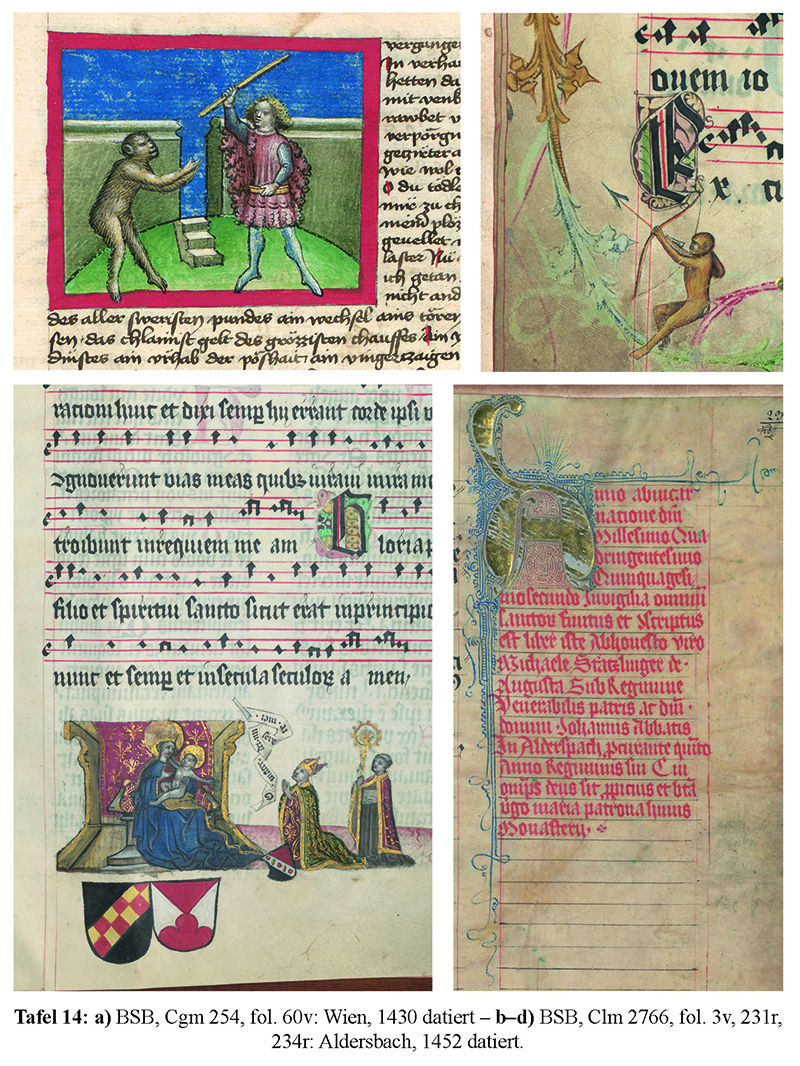 vergangen
In verhan
hetten da
mit venk
rawbet v
verpörgn
gezirter a
wie wol
O du tödle
mir zu ch
meim
gevellet
laster Nu
ich getan
nicht and
des aller sweristen pundes ain wechsel ains tören
sen · das chlainist gelt des grözzisten chauffes · Ain v
dinstes ain vrhab der pöshait / ain vingerzaigen
ouem io
rationi huic et dixi semp hij errant corde ipsi v
Ignouerunt vias meas quibz iuraui in ira me
troibunt in requiem me am Gloria p
filio et spiritui sancto sicut erat in principio
nunt et semp et in secula seculoꝝ a men,
Anno ab incar
natione dm̄
Millesimo Qua
dringentesimo
Quinquagesi
mosecundo In vigilia omniū
sanctor finitus et scriptus
est liber iste Ab honesto viro
Michaele Statzlinger de ·
Augusta Sub Regimine
Venerabilis patris ac dm̄ ·
domini Johannis Abbatis
In Alderspach, quito
Anno Regiminis sui C ui
omps deus sit ppicius et bta
vgo maria patrona huius
Monasterij ·
Tafel 14: a) BSB, Cgm 254, fol. 60v: Wien, 1430 datiert – b–d) BSB, Clm 2766, fol. 3v, 231r,
234r: Aldersbach, 1452 datiert.